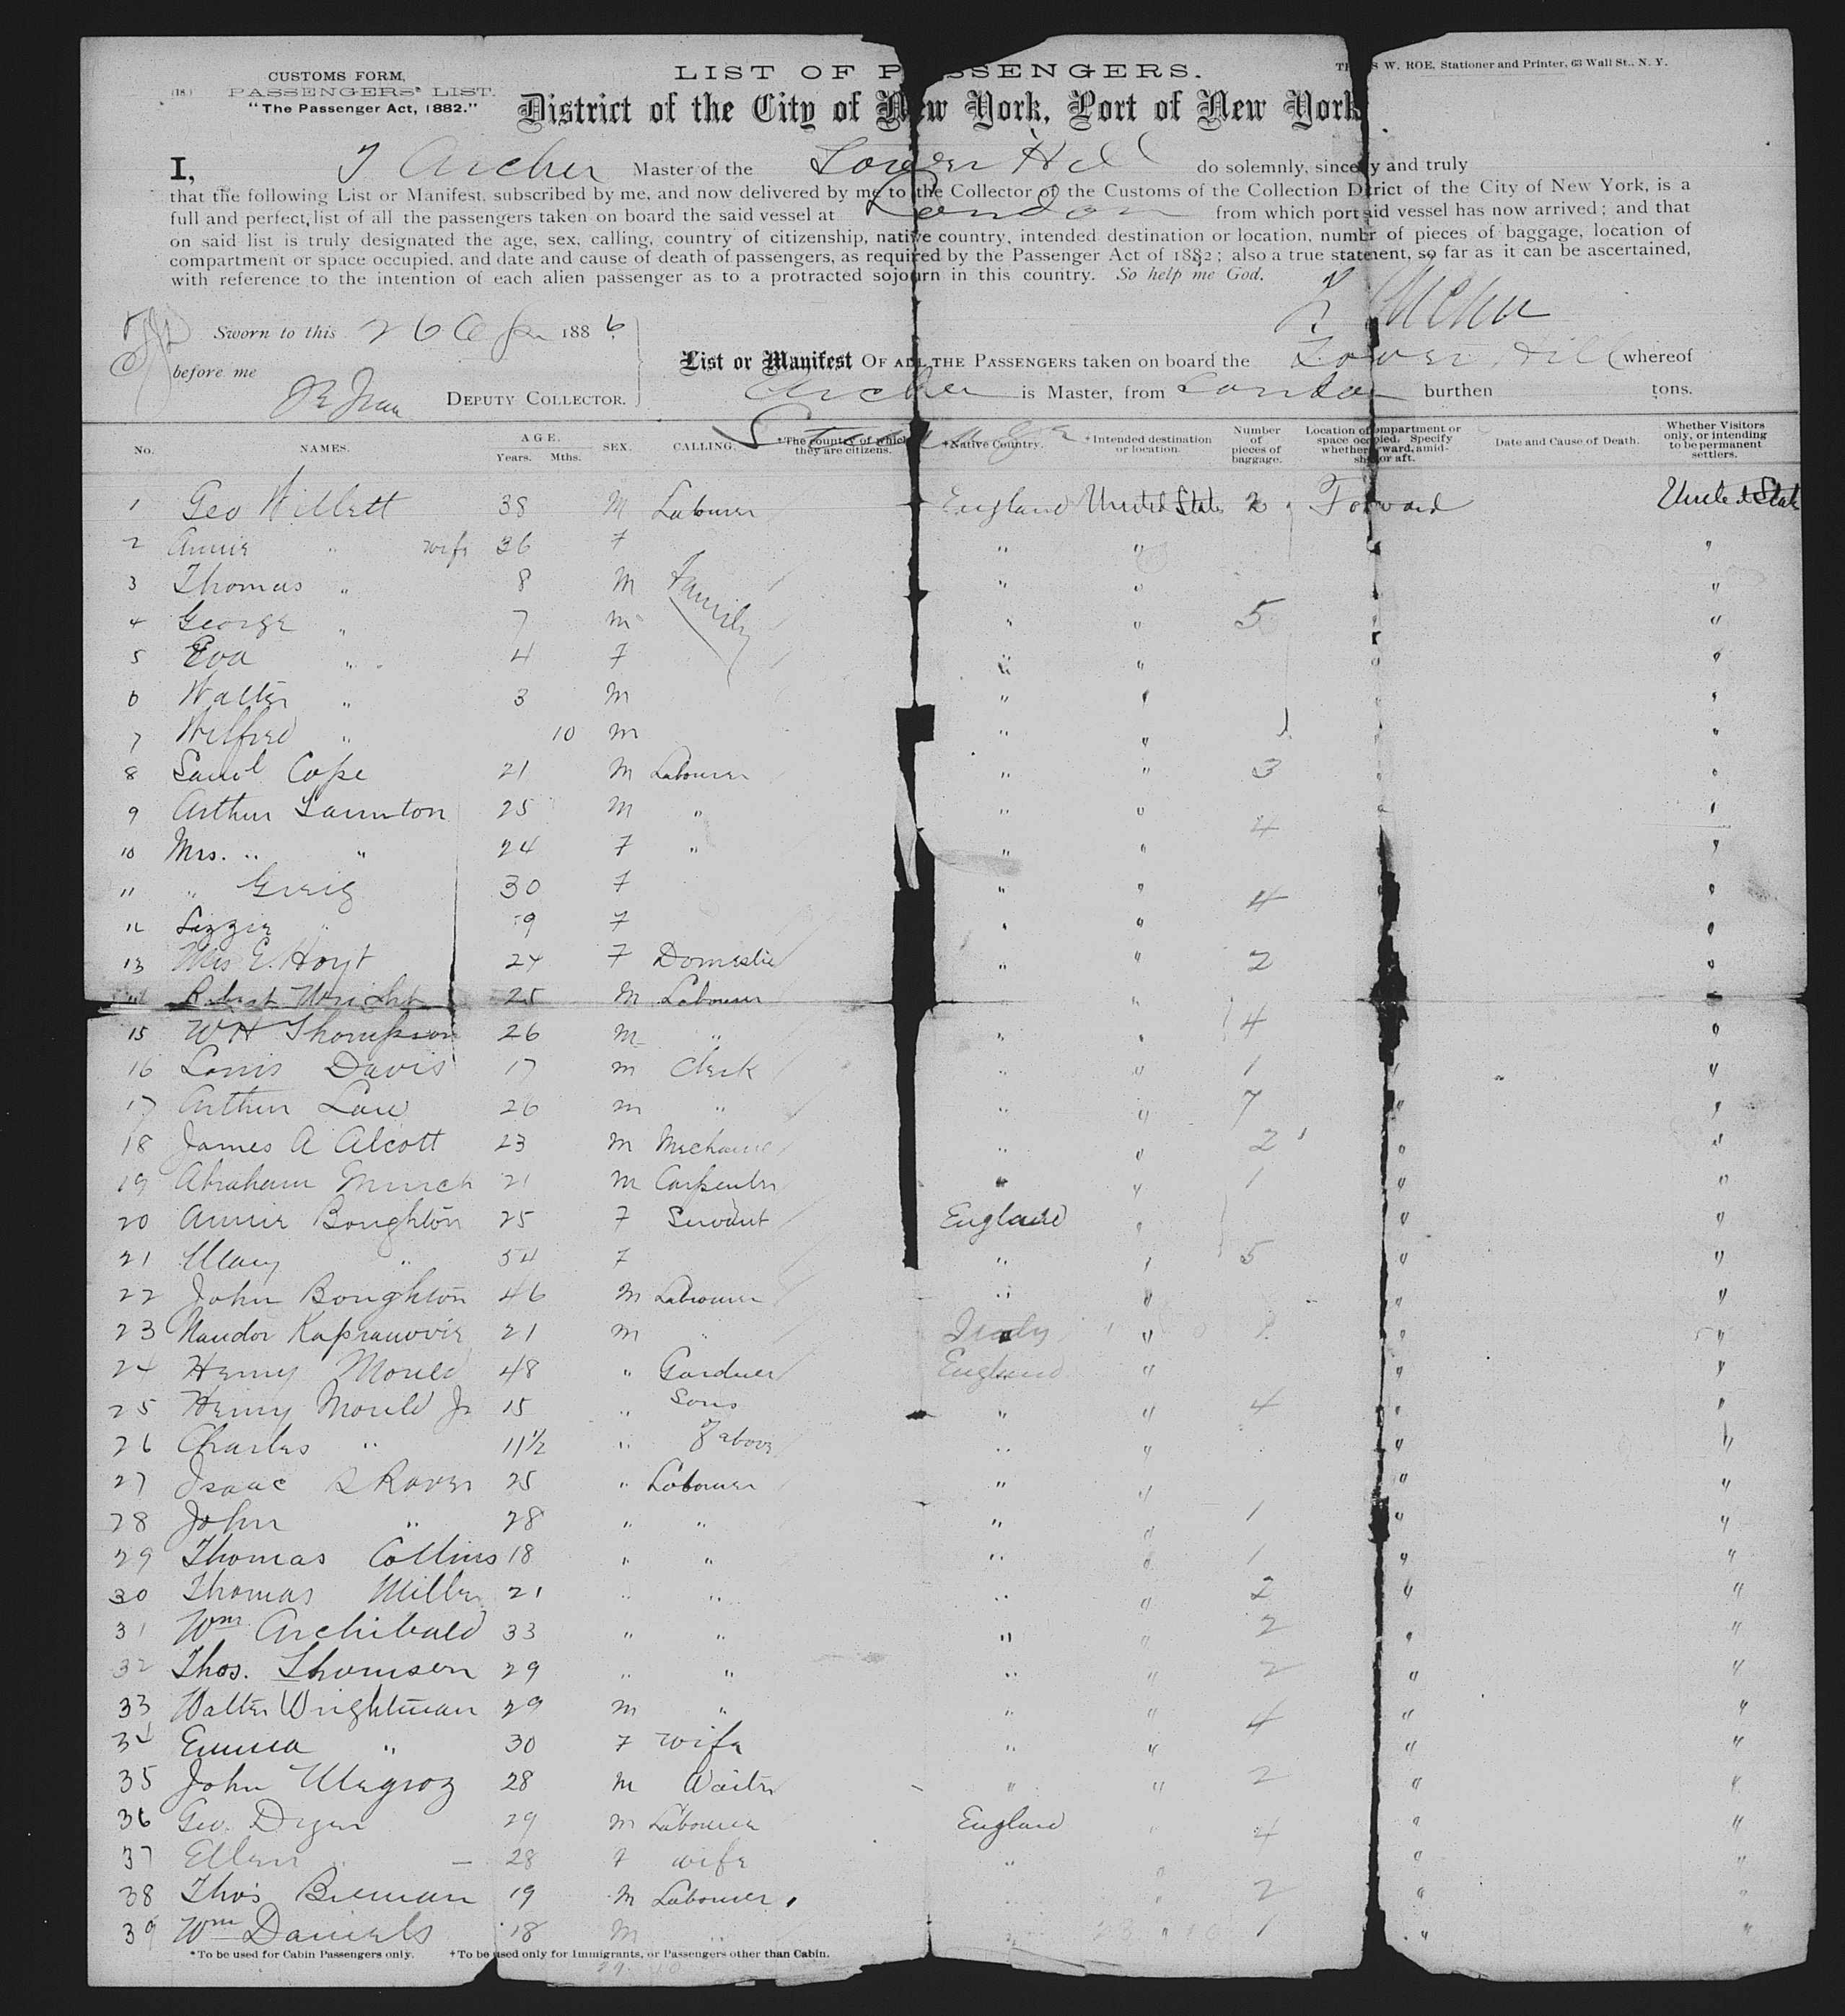 CUSTOMS FORM,
PASSENGERS' LIST.
"The Passenger Act, 1882."
LIST OF PASSENGERS.
W. ROE, Stationer and Printer, 63 Wall St., N. Y.
District of the City of New York, Port of New York
I, T Archer Master of the Tower Hill do solemnly, sincerely and truly
that the following List or Manifest, subscribed by me, and now delivered by me to the Collector of the Customs of the Collection District of the City of New York, is a
full and perfect list of all the passengers taken on board the said vessel at London from which port said vessel has now arrived; and that
on said list is truly designated the age, sex, calling, country of citizenship, native country, intended destination or location, number of pieces of baggage, location of
compartment or space occupied, and date and cause of death of passengers, as required by the Passenger Act of 1882; also a true statement, so far as it can be ascertained,
with reference to the intention of each alien passenger as to a protracted sojourn in this country. So help me God.
T Archer
Sworn to this 26 Apr 1886
before me
DEPUTY COLLECTOR.
List or Manifest OF ALL THE PASSENGERS taken on board the Tower Hill whereof
Archer is Master, from London burthen tons.
Steerage
No. NAMES. AGE. Years. Mths. SEX. CALLING. *The country of which they are citizens. †Native Country. †Intended destination or location. Number of pieces of baggage. Location of compartment or space occupied. Specify whether forward, amidships or aft. Date and Cause of Death. Whether Visitors only, or intending to be permanent settlers.
1 Geo Willett 38 M Labourer England United States 2 Forward United States
2 Annie " wife 36 F " " "
3 Thomas " 8 M Family " " " "
4 George " 7 m " " 5 " "
5 Eva " 4 F " " " "
6 Walter " 3 M " " " "
7 Wilfred " 10 m " " " "
8 Saml Cope 21 M Labourer " " 3 " "
9 Arthur Taunton 25 M " " " 4 " "
10 Mrs. " " 24 F " " " "
11 " Greig 30 F " " 4 "
12 Lizzie " 9 F " " "
13 Miss E. Hoyt 24 F Domestic " " 2 "
14 Robert Wright 25 M Labourer " "
15 W H Thompson 26 M " " " 4 "
16 Louis Davis 17 m Clerk " " 1 " "
17 Arthur Law 26 m " " " 7 " "
18 James A Alcott 23 M Mechanic " " 2 " "
19 Abraham Minch 21 M Carpenter " " 1 " "
20 Annie Boughton 25 F Servant England " " "
21 Mary " 54 F " " 5 " "
22 John Boughton 46 M Labourer " " " "
23 Nandor 21 m " Italy " " "
24 Henry Mould 48 " Gardner England " " "
25 Henry Mould Jr 15 " Sons " " 4 " "
26 Charles " 11½ " of above " " " "
27 Isaac 25 " Labourer " " " "
28 John " 28 " " " " 1 " "
29 Thomas Collins 18 " " " " 1 " "
30 Thomas Miller 21 " " " " 2 " "
31 Wm Archibald 33 " " " " 2 " "
32 Thos. Thomson 29 " " " " 2 " "
33 Walter Wrightman 29 m " " " 4 " "
34 Emma " 30 F wife " " " "
35 John Megroz 28 M Waiter " " 2 " "
36 Geo. Dyer 29 m Labourer England " 4 " "
37 Ellen " 28 F wife " " " "
38 Thos Breman 19 M Labourer " " 2 " "
39 Wm Daniels 18 M " " " 1 " "
*To be used for Cabin Passengers only. †To be used only for Immigrants, or Passengers other than Cabin.